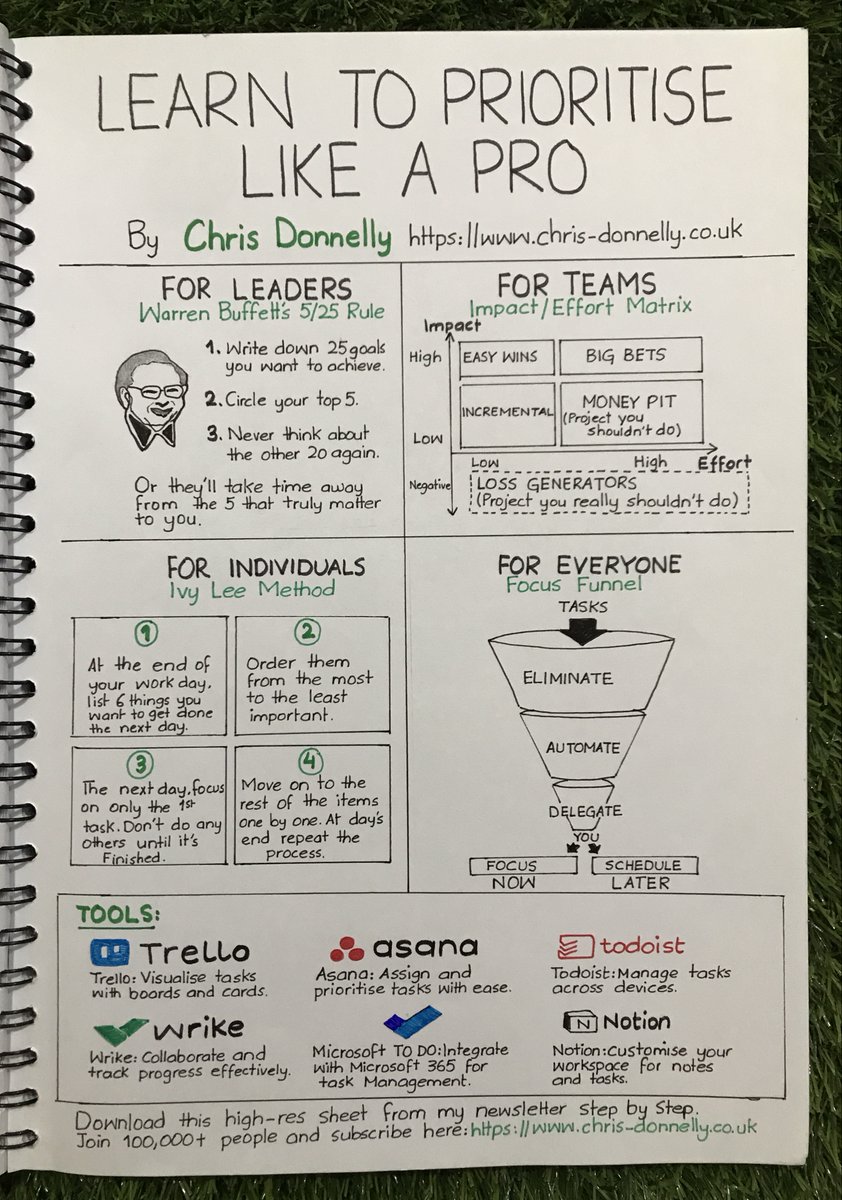 LEARN TO PRIORITISE
LIKE A PRO
By Chris Donnelly https://www.chris-donnelly.co.uk
FOR LEADERS
Warren Buffett's 5/25 Rule
1. Write down 25 goals
you want to achieve.
2. Circle your top 5.
3. Never think about
the other 20 again.
Or they'll take time away
from the 5 that truly matter
to you.
FOR TEAMS
Impact/Effort Matrix
Impact
High
EASY WINS
BIG BETS
INCREMENTAL
MONEY PIT
(Project you
shouldn't do)
Low
Low
High
Effort
Negative
LOSS GENERATORS
(Project you really shouldn't do)
FOR INDIVIDUALS
Ivy Lee Method
1
At the end of
your work day,
list 6 things you
want to get done
the next day.
2
Order them
from the most
to the least
important.
3
The next day, focus
on only the 1st
task. Don't do any
others until it's
Finished.
4
Move on to the
rest of the items
one by one. At day's
end repeat the
process.
FOR EVERYONE
Focus Funnel
TASKS
ELIMINATE
AUTOMATE
DELEGATE
YOU
FOCUS
NOW
SCHEDULE
LATER
TOOLS:
Trello
Trello: Visualise tasks
with boards and cards.
asana
Asana: Assign and
prioritise tasks with ease.
todoist
Todoist: Manage tasks
across devices.
wrike
Wrike: Collaborate and
track progress effectively.
Microsoft TO DO: Integrate
with Microsoft 365 for
task Management.
N Notion
Notion: Customise your
workspace for notes
and tasks.
Download this high-res sheet from my newsletter step by step.
Join 100,000+ people and subscribe here: https://www.chris-donnelly.co.uk